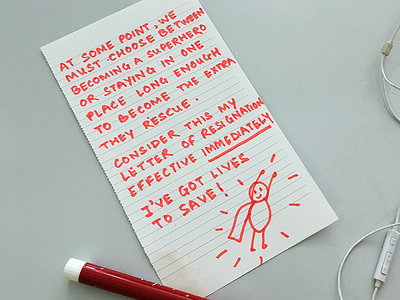 AT SOME POINT, WE
MUST CHOOSE BETWEEN
BECOMING A SUPERHERO
OR STAYING IN ONE
PLACE LONG ENOUGH
TO BECOME THE EXTRA
THEY RESCUE.
CONSIDER THIS MY
LETTER OF RESIGNATION
EFFECTIVE IMMEDIATELY
I'VE GOT LIVES
TO SAVE!